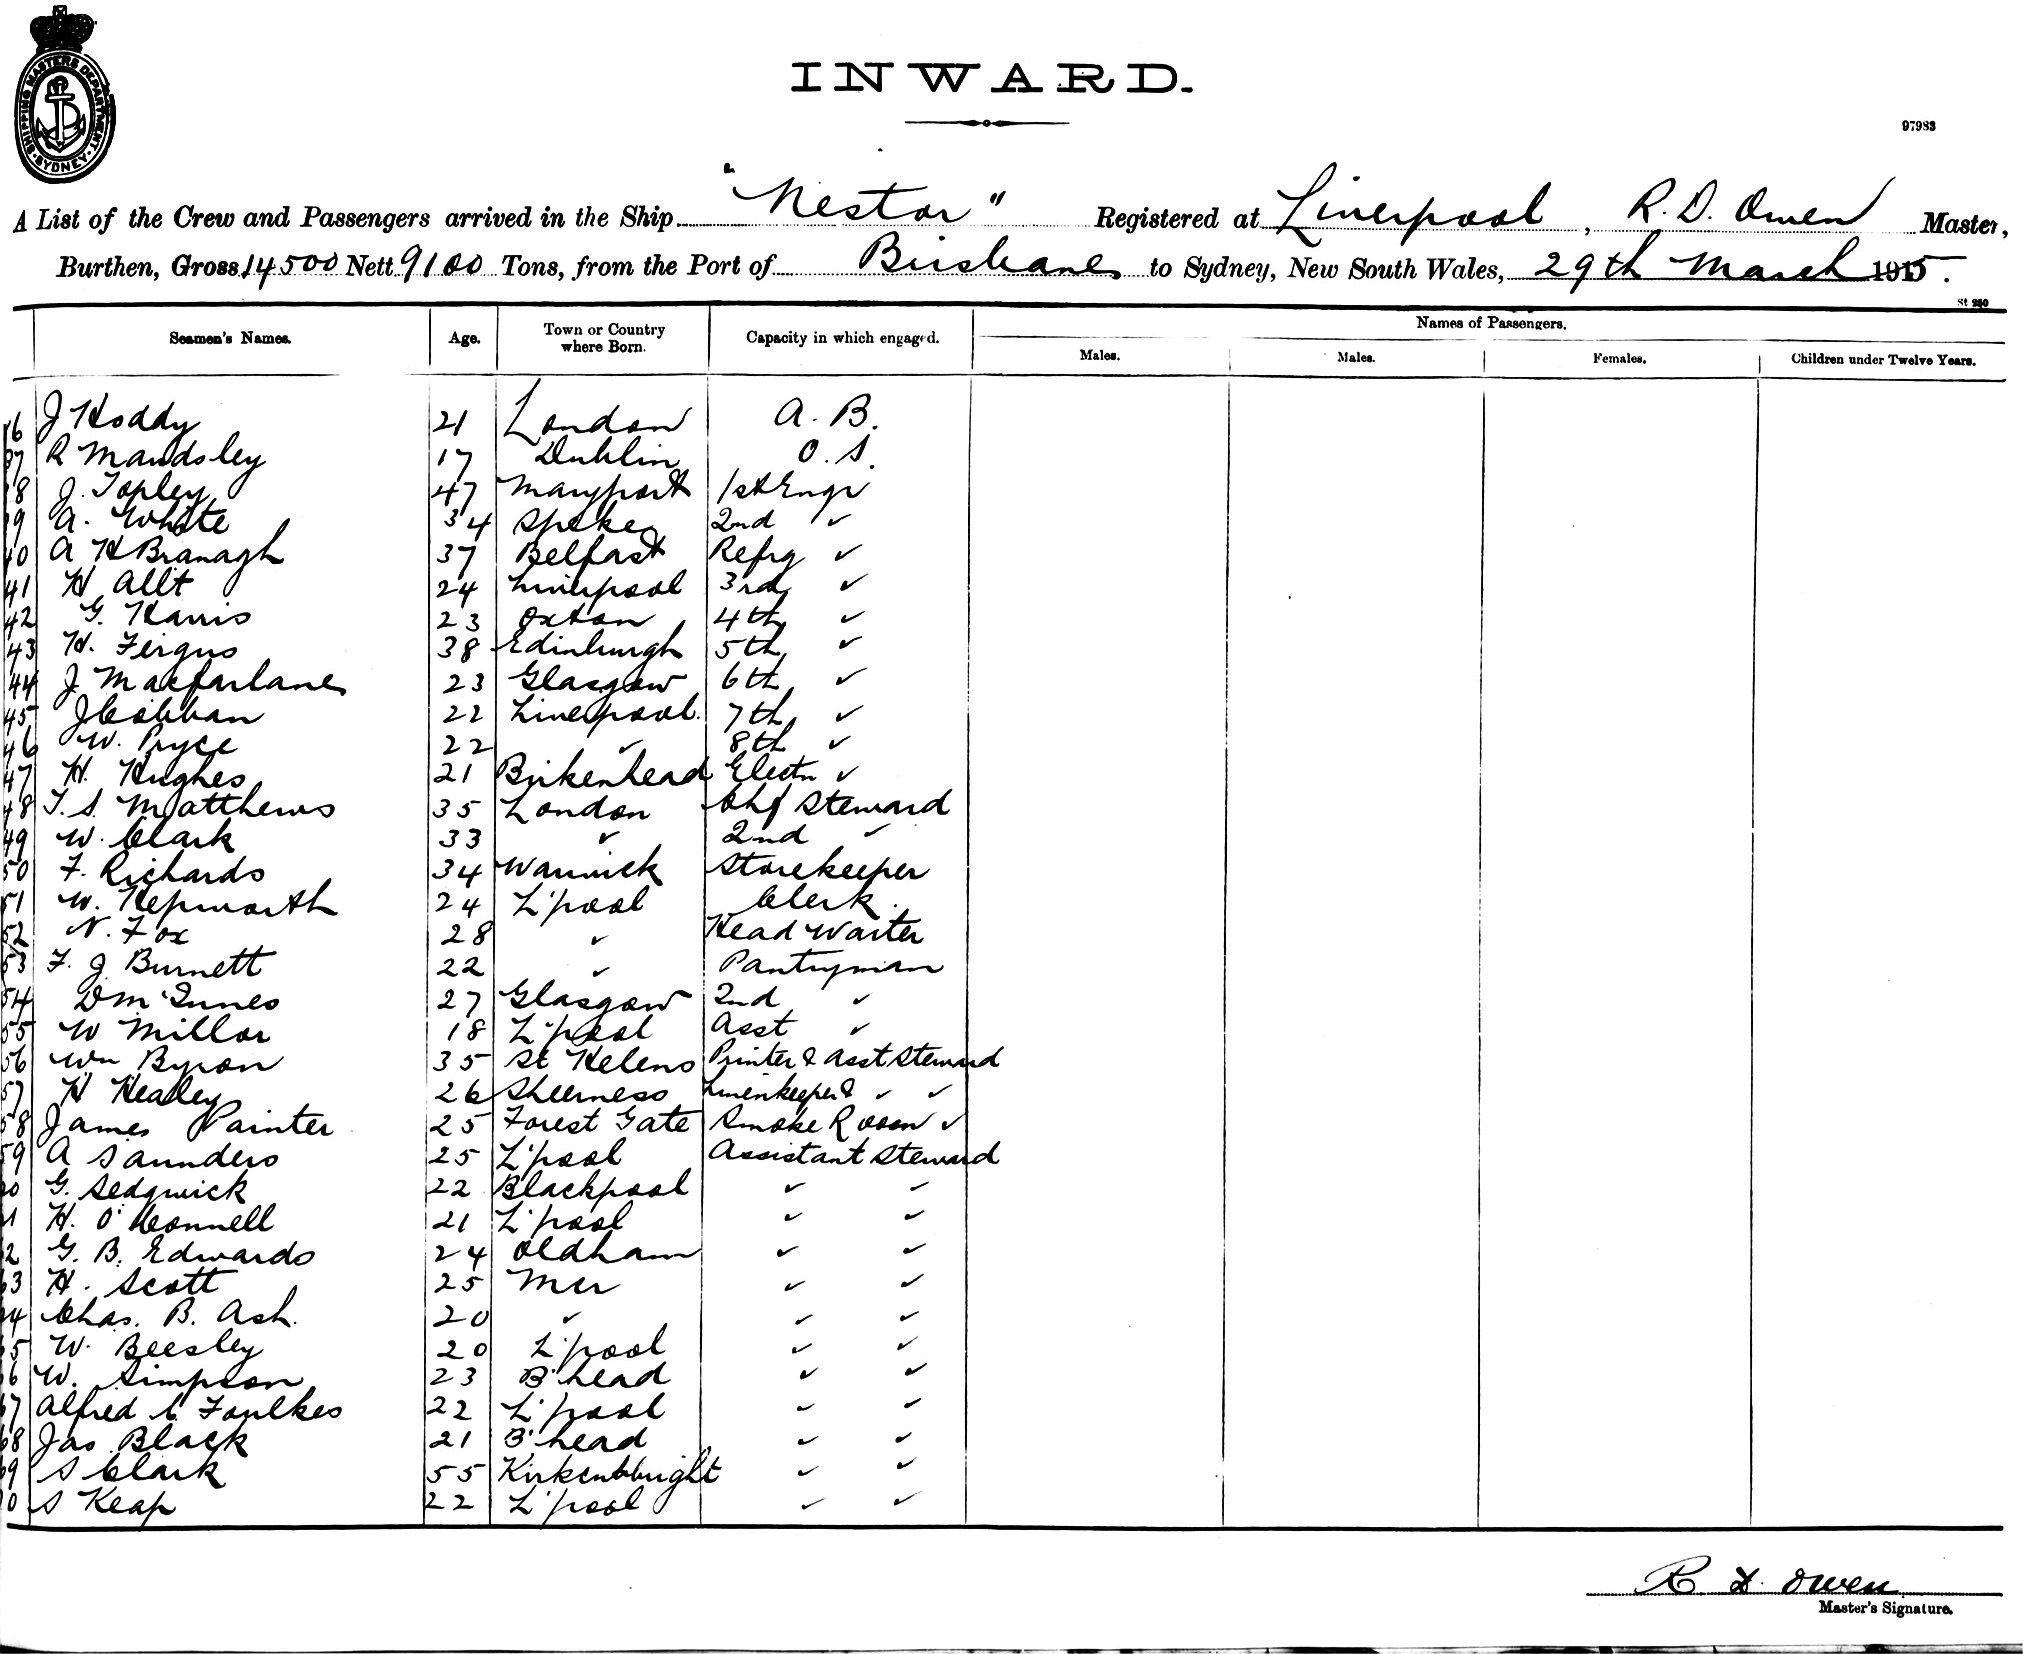 SHIPPING MASTERS DEPARTMENT SYDNEY
INWARD.
97983
A List of the Crew and Passengers arrived in the Ship "Nestor" Registered at Liverpool, R. D. Owen Master,
Burthen, Gross 14500 Nett 9100 Tons, from the Port of Brisbane to Sydney, New South Wales, 29th March 1915.
St 250
Seamen's Names. Age. Town or Country where Born. Capacity in which engaged. Names of Passengers.
Males. Males. Females. Children under Twelve Years.
36 J Hoddy 21 London A. B.
37 R Mandsley 17 Dublin O. S.
38 J. Topley 47 Maryport 1st Engr
39 A. White 34 Speke 2nd ✓
40 A H Branagh 37 Belfast Refrg ✓
41 H Allt 24 Liverpool 3rd ✓
42 G. Harris 23 Oxton 4th ✓
43 H. Fergus 38 Edinburgh 5th ✓
44 J Macfarlane 23 Glasgow 6th ✓
45 J Cobban 22 Liverpool. 7th ✓
46 W. Pryce 22 ✓ 8th ✓
47 H. Hughes 21 Birkenhead Electn ✓
48 T. S. Matthews 35 London Chf Steward
49 W. Clark 33 ✓ 2nd ✓
50 F. Richards 34 Warwick Storekeeper
51 W. Hepworth 24 L'pool Clerk.
52 N. Fox 28 ✓ Head Waiter
53 F. J Burnett 22 ✓ Pantryman
54 D McInnes 27 Glasgow 2nd ✓
55 W Millar 18 L'pool Asst ✓
56 Wm Byron 35 St Helens Printer & Asst Steward
57 H Healey 26 Sheerness Linenkeeper & ✓ ✓
58 James Painter 25 Forest Gate Smoke Room ✓
59 A Saunders 25 L'pool Assistant Steward
60 G. Sedgwick 22 Blackpool ✓ ✓
61 H. O'Connell 21 L'pool ✓ ✓
62 G. B. Edwards 24 Oldham ✓ ✓
63 H. Scott 25 Mcr ✓ ✓
64 Chas. B. Ash. 20 ✓ ✓ ✓
65 W. Beesley 20 L'pool ✓ ✓
66 W. Simpson 23 B'head ✓ ✓
67 Alfred C. Foulkes 22 L'pool ✓ ✓
68 Jas Black 21 B'head ✓ ✓
69 S Clark 55 Kirkcudbright ✓ ✓
70 S Keap 22 L'pool ✓ ✓
R D. Owen
Master's Signature.